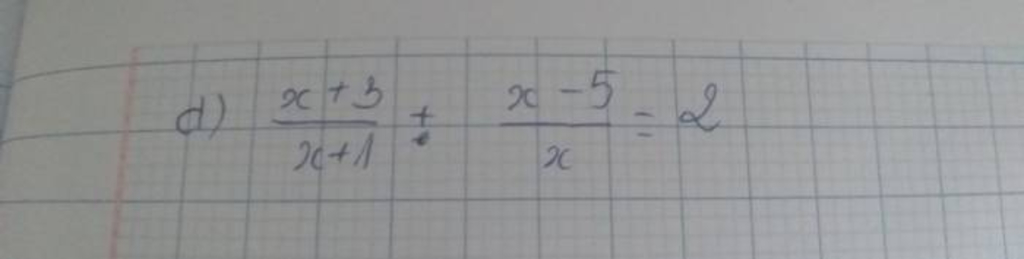 d) \frac{x+3}{x+1} + \frac{x-5}{x} = 2